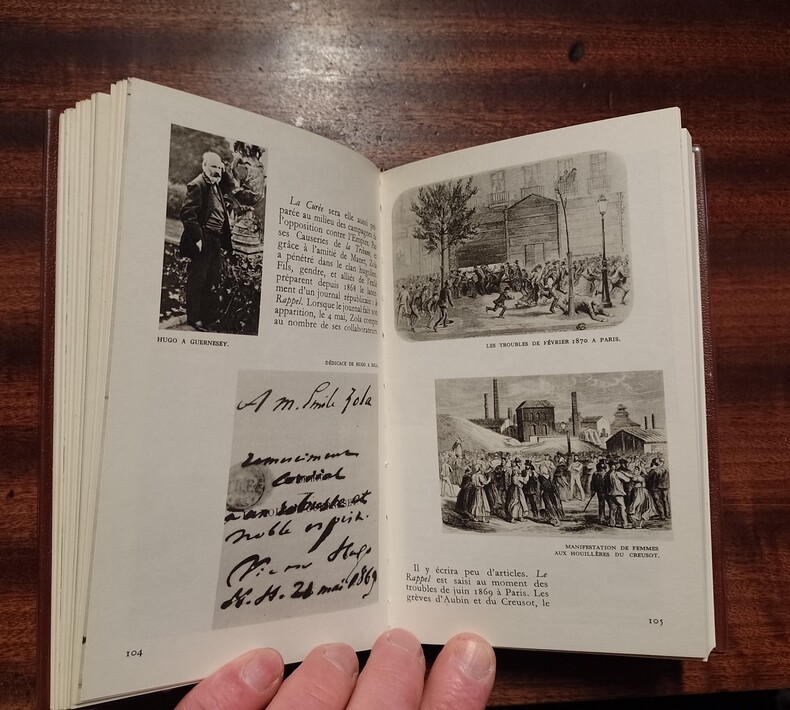 La Curée sera elle aussi pré
parée au milieu des campagnes de
l'opposition contre l'Empire. Par
ses Causeries de la Tribune, et
grâce à l'amitié de Manet, Zola
a pénétré dans le clan hugolien.
Fils, gendre, et alliés de l'exilé
préparent depuis 1868 le lance
ment d'un journal républicain : le
Rappel. Lorsque le journal fait son
apparition, le 4 mai, Zola compte
au nombre de ses collaborateurs.
HUGO A GUERNESEY.
DÉDICACE DE HUGO A ZOLA.
A M. Emile Zola
remerciement
cordial
a un robuste et
noble esprit.
Victor Hugo
H. H. 21 mai 1869
104
LES TROUBLES DE FÉVRIER 1870 A PARIS.
MANIFESTATION DE FEMMES
AUX HOUILLÈRES DU CREUSOT.
Il y écrira peu d'articles. Le
Rappel est saisi au moment des
troubles de juin 1869 à Paris. Les
grèves d'Aubin et du Creusot, le
105